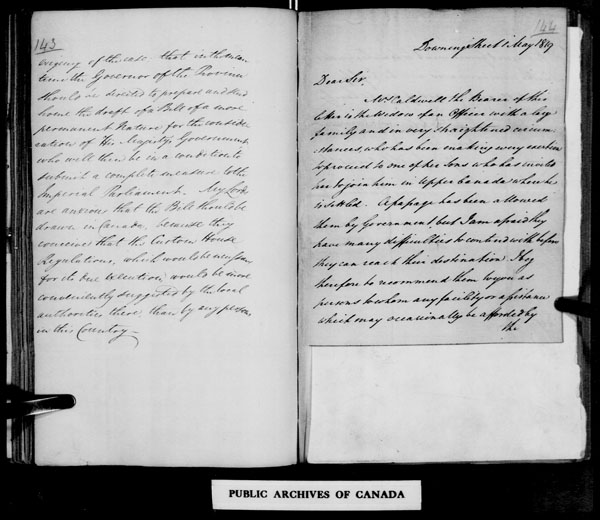 143
exigency of the case that in the mean
time the Governor of the Province
should be desired to prepare and send
home the draft of a Bill of a more
permanent Nature for the consider
ation of His Majesty's Government
who will then be in a condition to
submit a complete measure to the
Imperial Parliament. My Lords
are anxious that the Bill should be
drawn in Canada, because they
conceive that the Custom House
Regulations, which would be necessary
for its due execution, would be more
conveniently suggested by the local
authorities there than by any persons
in this Country—
144
Downing Street 1 May 1819
Dear Sir.
Mrs Caldwell the Bearer of this
letter is the Widow of an Officer with a large
family and in very straightened circum
stances, who has been making every exertion
to proceed to one of her Sons who has invited
her to join him in Upper Canada where he
is settled. A passage has been allowed
them by Government, but I am afraid they
have many difficulties to contend with before
they can reach their destination. I beg
therefore to recommend them to you as
persons to whom any facility or assistance
which may occasionally be afforded by
the
PUBLIC ARCHIVES OF CANADA